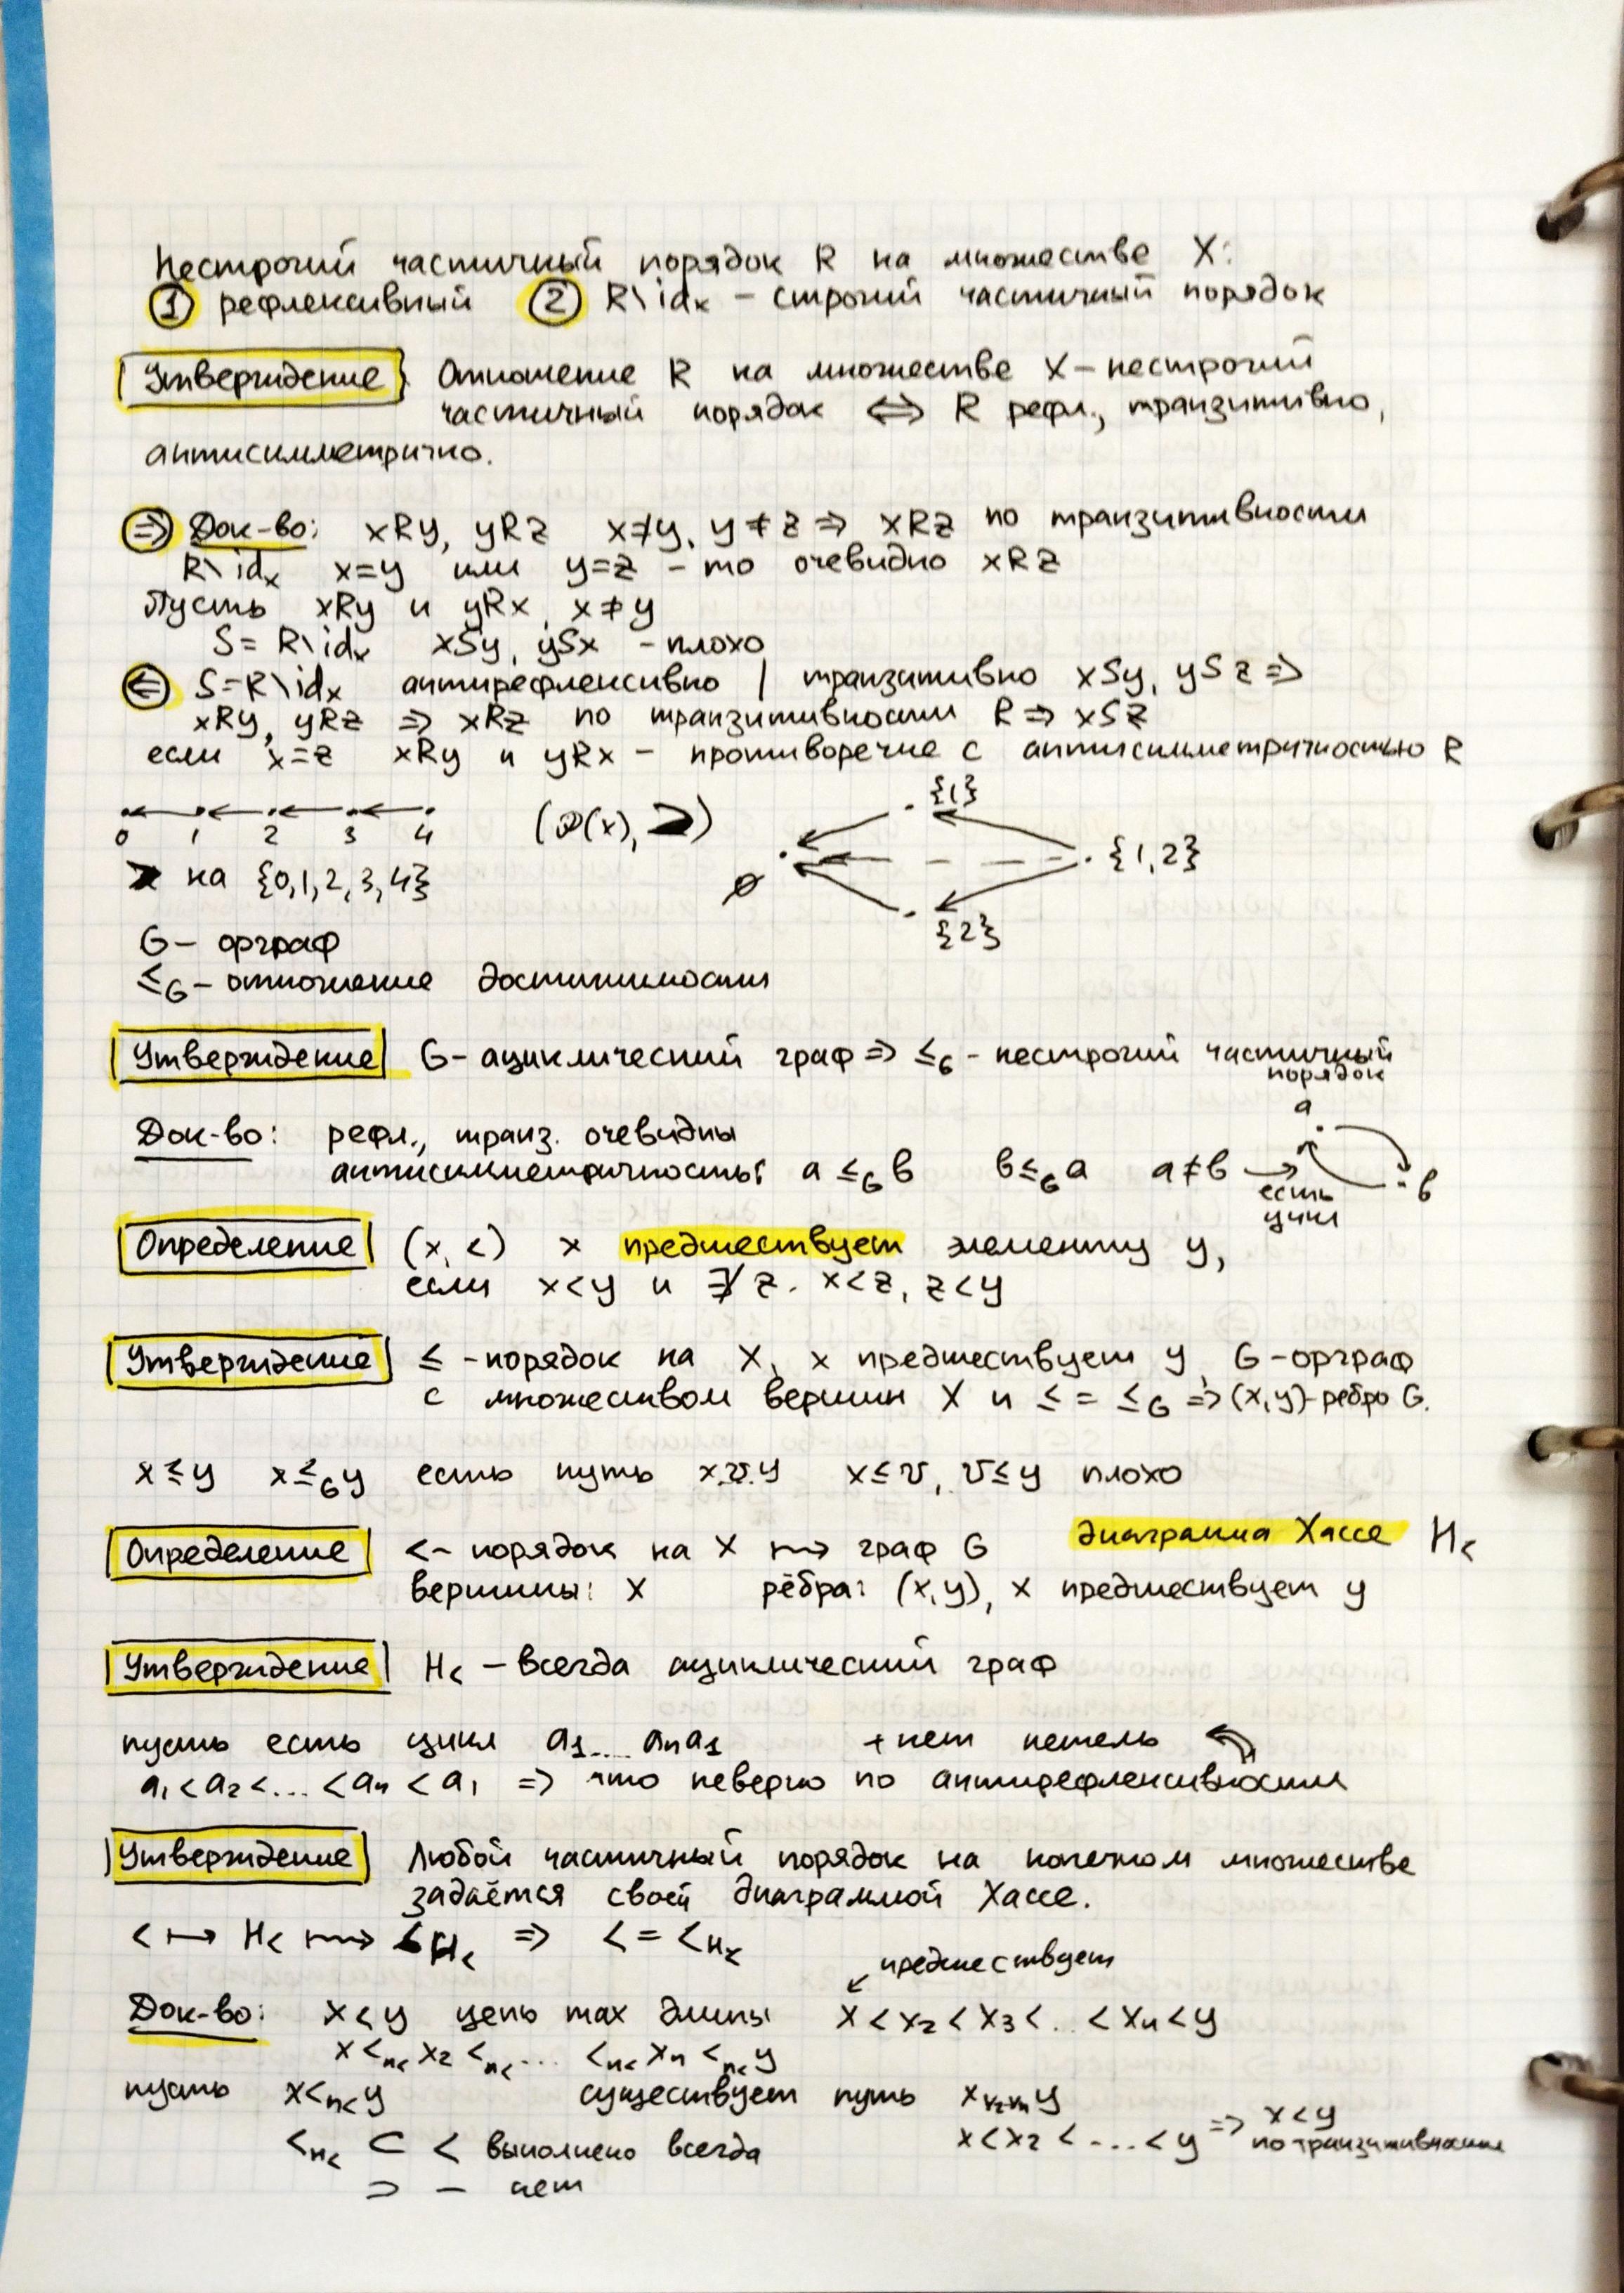 Нестрогий частичный порядок R на множестве X:
① рефлексивный ② R\idₓ – строгий частичный порядок
Утверждение Отношение R на множестве X – нестрогий
частичный порядок ⇔ R рефл., транзитивно,
антисимметрично.
⇒ Док-во: xRy, yRz x≠y, y≠z ⇒ xRz по транзитивности
R\idₓ x=y или y=z – то очевидно xRz
Пусть xRy и yRx, x≠y
S = R\idₓ xSy, ySx – плохо
⇐ S=R\idₓ антирефлексивно | транзитивно xSy, ySz ⇒
xRy, yRz ⇒ xRz по транзитивности R ⇒ xSz
если x=z xRy и yRx – противоречие с антисимметричностью R
0 1 2 3 4
(P(x), ⊇) {1} {1,2} {2} ∅
на {0,1,2,3,4}
G – орграф
≤_G – отношение достижимости
Утверждение G – ациклический граф ⇒ ≤_G – нестрогий частичный
порядок
Док-во: рефл., транз. очевидны
антисимметричность: a ≤_G b b ≤_G a a≠b → есть цикл
a b
Определение (x, <) x предшествует элементу y,
если x<y и ∄z. x<z, z<y
Утверждение ≤ – порядок на X, x предшествует y, G – орграф
с множеством вершин X и ≤ = ≤_G ⇒ (x,y) – ребро G.
x≤y x≤_G y есть путь x..v..y x≤v, v≤y плохо
Определение < – порядок на X ↦ граф G диаграмма Хассе H_<
вершины: X рёбра: (x,y), x предшествует y
Утверждение H_< – всегда ациклический граф
пусть есть цикл a₁....aₙa₁ + нет петель
a₁<a₂<...<aₙ<a₁ ⇒ что неверно по антирефлексивности
Утверждение Любой частичный порядок на конечном множестве
задаётся своей диаграммой Хассе.
< ↦ H_< ↦ <_{H_<} ⇒ < = <_{H_<}
предшествует
Док-во: x<y цепь max длины x<x₂<x₃<..<xₙ<y
x <_{H_<} x₂ <_{H_<} ... <_{H_<} xₙ <_{H_<} y
пусть x <_{H_<} y существует путь x x₂ xₙ y
x<x₂<...<y ⇒ x<y
по транзитивности
<_{H_<} ⊂ < выполнено всегда
⊃ – нет